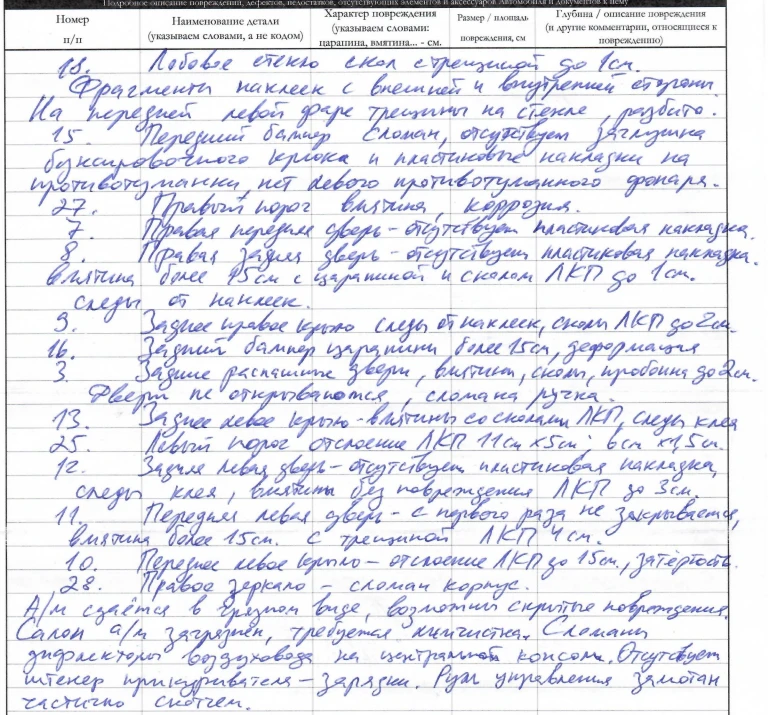 Подробное описание повреждений, дефектов, недостатков, отсутствующих элементов и аксессуаров Автомобиля и документов к нему
Номер п/п Наименование детали (указываем словами, а не кодом) Характер повреждения (указываем словами: царапина, вмятина... - см. Размер / площадь повреждения, см Глубина / описание повреждения (и другие комментарии, относящиеся к повреждению)
18. Лобовое стекло скол с трещиной до 1см.
Фрагменты наклеек с внешней и внутренней стороны.
На передней левой фаре трещины на стекле, разбито.
15. Передний бампер сломан, отсутствует заглушка
буксировочного крюка и пластиковые накладки на
противотуманки, нет левого противотуманного фонаря.
27. Правый порог вмятина, коррозия.
7. Правая передняя дверь - отсутствует пластиковая накладка.
8. Правая задняя дверь - отсутствует пластиковая накладка.
вмятина более 15см с царапиной и сколом ЛКП до 1см.
следы от наклеек.
9. Заднее правое крыло следы от наклеек, сколы ЛКП до 2см.
16. Задний бампер царапины более 15см, деформация
3. Задние распашные двери, вмятины, сколы, пробоина до 2см.
Двери не открываются, сломана ручка.
13. Заднее левое крыло - вмятины со сколами ЛКП, следы клея
25. Левый порог отслоение ЛКП 11см х5см; 6см х1,5см.
12. Задняя левая дверь - отсутствует пластиковая накладка,
следы клея, вмятины без повреждения ЛКП до 3см.
11. Передняя левая дверь - с первого раза не закрывается,
вмятина более 15см. с трещиной ЛКП 4см.
10. Переднее левое крыло - отслоение ЛКП до 15см., затёртость.
28. Правое зеркало - сломан корпус.
А/м сдаётся в грязном виде, возможны скрытые повреждения.
Салон а/м загрязнён, требуется химчистка. Сломаны
дифлекторы воздуховода на центральной консоли. Отсутствует
штекер прикуривателя - зарядки. Руль управления замотан
частично скотчем.